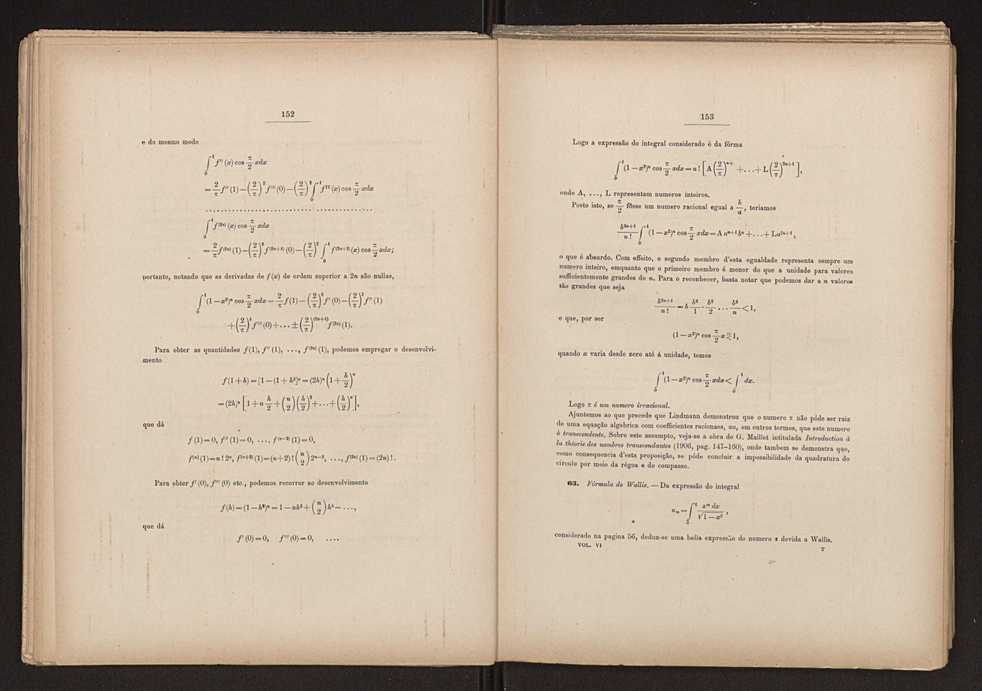 152
e do mesmo modo
∫₀¹ f''(x) cos π/2 xdx
= 2/π f''(1) − (2/π)² f'''(0) − (2/π)² ∫₀¹ f^{IV}(x) cos π/2 xdx
. . . . . . . . . . . . . . . . . . . . . . . . . . . . . .
∫₀¹ f^{(2n)}(x) cos π/2 xdx
= 2/π f^{(2n)}(1) − (2/π)² f^{(2n+1)}(0) − (2/π)² ∫₀¹ f^{(2n+2)}(x) cos π/2 xdx;
portanto, notando que as derivadas de f(x) de ordem superior a 2n são nullas,
∫₀¹ (1−x²)ⁿ cos π/2 xdx = 2/π f(1) − (2/π)² f'(0) − (2/π)³ f''(1)
+ (2/π)⁴ f'''(0) + ... ± (2/π)^{(2n+1)} f^{(2n)}(1).
Para obter as quantidades f(1), f'(1), ..., f^{(2n)}(1), podemos empregar o desenvolvi-
mento
f(1+h) = [1−(1+h)²]ⁿ = (2h)ⁿ (1 + h/2)ⁿ
= (2h)ⁿ [1 + n h/2 + (n/2)(h/2)² + ... + (h/2)ⁿ],
que dá
f(1)=0, f''(1)=0, ..., f^{(n−2)}(1)=0,
f^{(n)}(1)=n! 2ⁿ, f^{(n+2)}(1)=(n+2)! (n/2) 2^{n−2}, ..., f^{(2n)}(1)=(2n)!.
Para obter f'(0), f'''(0) etc., podemos recorrer ao desenvolvimento
f(h) = (1−h²)ⁿ = 1 − nh² + (n/2) h⁴ − ...,
que dá
f'(0)=0, f'''(0)=0, ....
153
Logo a expressão do integral considerado é da fórma
∫₀¹ (1−x²)ⁿ cos π/2 xdx = n! [A (2/π)^{n+1} + ... + L (2/π)^{2n+1}],
onde A, ..., L representam numeros inteiros.
Posto isto, se π/2 fôsse um numero racional egual a b/a, teriamos
b^{2n+1}/n! ∫₀¹ (1−x²)ⁿ cos π/2 xdx = A a^{n+1} bⁿ + ... + L a^{2n+1},
o que é absurdo. Com effeito, o segundo membro d'esta egualdade representa sempre um
numero inteiro, emquanto que o primeiro membro é menor do que a unidade para valores
sufficientemente grandes de n. Para o reconhecer, basta notar que podemos dar a n valores
tão grandes que seja
b^{2n+1}/n! = b b²/1 b²/2 ... b²/n < 1,
e que, por ser
(1−x²)ⁿ cos π/2 x ≦ 1,
quando x varia desde zero até á unidade, temos
∫₀¹ (1−x²)ⁿ cos π/2 xdx < ∫₀¹ dx.
Logo π é um numero irracional.
Ajuntemos ao que precede que Lindmann demonstrou que o numero π não póde ser raiz
de uma equação algebrica com coefficientes racionaes, ou, em outros termos, que este numero
é transcendente. Sobre este assumpto, veja-se a obra de G. Maillet intitulada Introduction à
la théorie des nombres transcendantes (1906, pag. 147-160), onde tambem se demonstra que,
como consequencia d'esta proposição, se póde concluir a impossibilidade da quadratura do
circulo por meio da régua e do compasso.
63. Fórmula de Wallis. — Da expressão do integral
uₘ = ∫₀¹ xᵐ dx / √1−x² ,
considerado na pagina 56, deduz-se uma bella expressão do numero π devida a Wallis.
VOL. VI
T